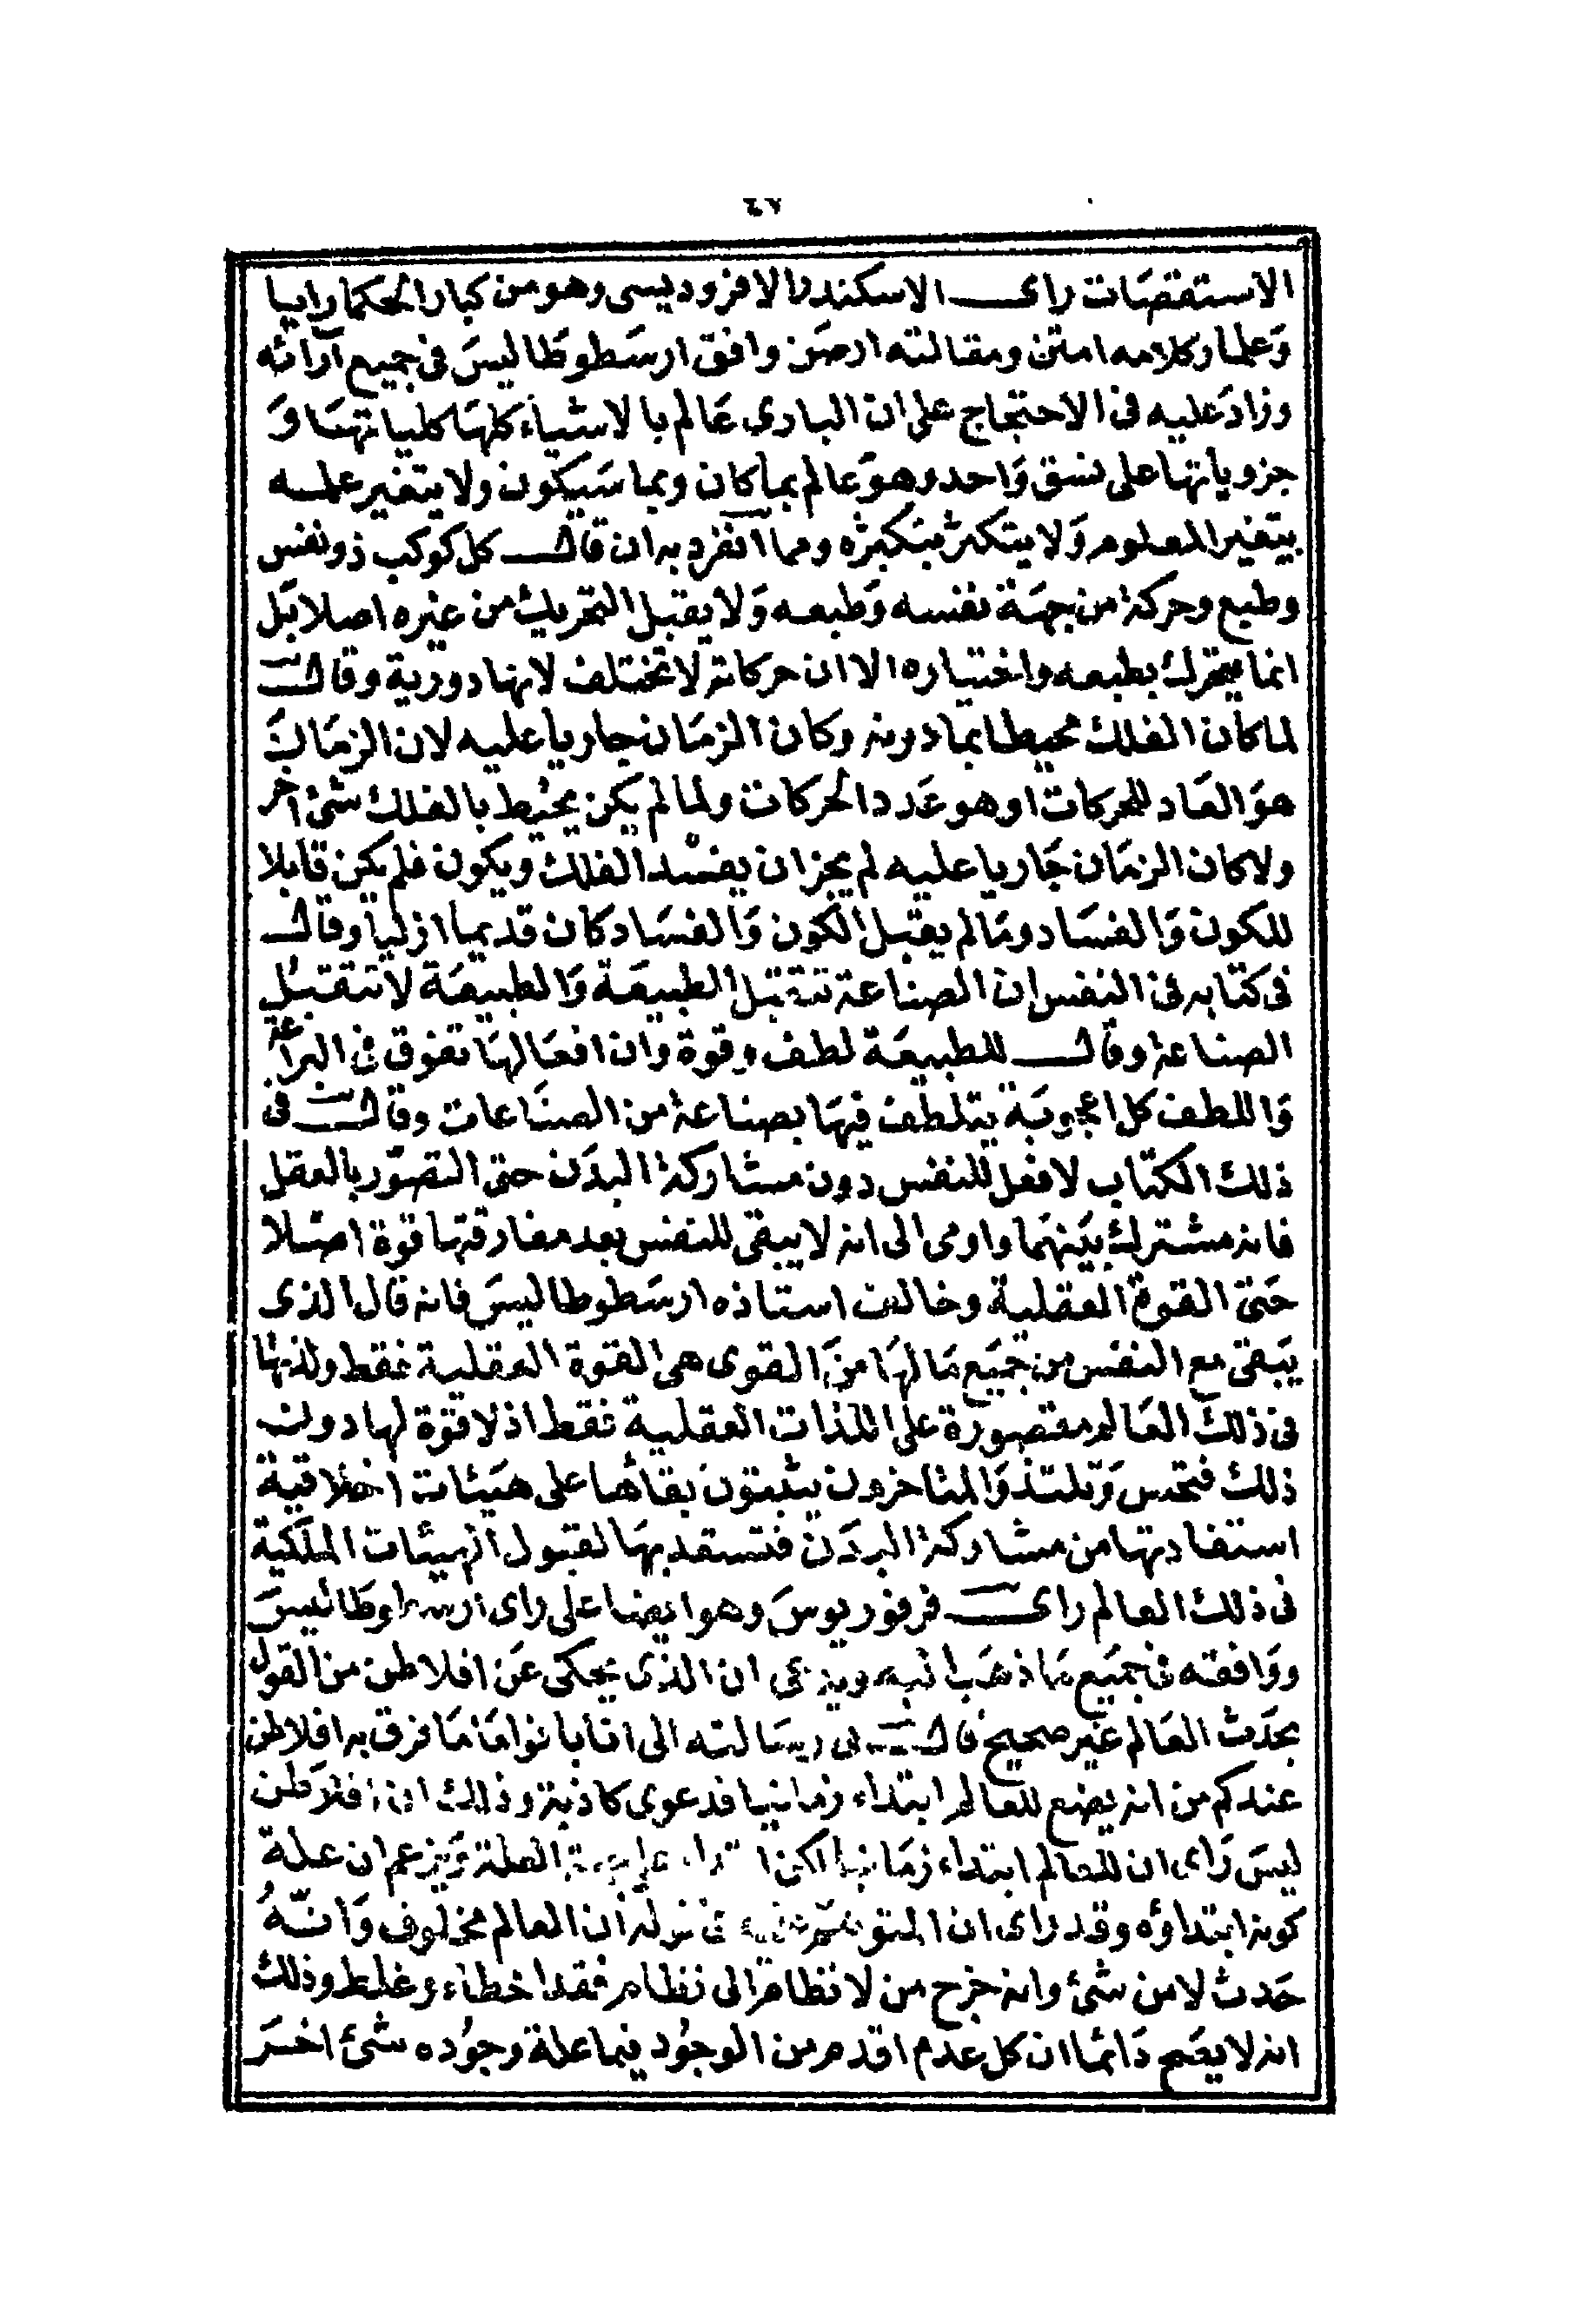 ٤٧
الاستقصات راى الاسكندر الافروديسى وهو من كبار الحكما رايا
وَعلما وكلامه امتن ومقالته ارصَن وافق ارسَطوطَاليسَ فى جميع آرائه
وزادَ عليه فى الاحتجاج على ان البارى عَالم بالاشياء كلهَا كلياتهَا وَ
جزوياتها على نسق وَاحد وهوَ عَالم بما كان وبما سَيكون ولا يتغير علمه
بتغير المعلوم وَلا يتكثر بتكثره ومما انفرد به ان قال كل كوكب ذو نفس
وطبع وحركة من جهَة نفسه وَطبعه وَلا يقبل التحريك من غيره اصلا بَل
انما يتحرك بطبعه واختياره الا ان حركاته لا تختلف لانها دورية وقال
لما كان الفلك محيطا بما دونه وكان الزمَان جاريا عليه لان الزمَان
هوَ العَاد للحركات او هو عَدد الحركات ولما لم يكن يحيُط بالفلك شئ اخر
ولا كان الزمَان جَاريا عليه لم يجز ان يفسد الفلك ويكون فلم يكن قابلا
للكون وَالفسَاد ومَا لم يقبل الكون وَالفسَاد كان قديما ازليا وقال
فى كتابه فى النفس ان الصناعة تتقبل الطبيعَة وَالطبيعَة لا تتقبل
الصناعة وقال للطبيعَة لطف وقوة وان افعَالهَا تفوق فى البراعة
وَاللطف كل اعجوبَة يتلطف فيهَا بصناعة من الصنَاعات وقال فى
ذلك الكتاب لا فعل للنفس دون مشاركة البدَن حتى التصوّر بالعقل
فانه مشترك بيَنهمَا واومى الى انه لا يبقى للنفس بعد مفارقتها قوة اصَلا
حَتى القوة العقلية وخالف استاذه ارسَطوطاليسَ فانه قال الذى
يَبقى مع النفس من جميَع مَا لهَا منَ القوى هى القوة العقلية فقط ولذتها
فى ذلك العَالم مقصورة على اللذات العقلية فقط اذ لا قوّة لها دون
ذلك فتحس وَتلتذ وَالمتاخرون يثبتون بقائها على هيَئات اخلاقية
استفادتها من مشاركة البدَن فتستعد بهَا لقبول الهيئات الملكية
فى ذلك العالم راى فرفوريوسَ وهو ايضا على راى ارسطوطاليسَ
ووَافقه فى جميَع مَا ذهَب اليه ويدعى ان الذى يحكى عَن افلاطن من القول
بحدَث العَالم غيَر صحيح قال فى رسَالته الى انابانوا مَا مَا فرق به افلاطن
عندكم من انه يضع للعالم ابتداء زمانيا فدعوى كاذبة وذلك ان افلاطن
ليسَ رَاى ان للعالم ابتداء زمَانيا لكن ابتداء على جهة العلة وَيزعم ان علة
كونه ابتداؤه وقد راى ان المتوهم عليه فى قوله ان العالم مخلوق وَانّهُ
حَدث لا من شئ وانه خرج من لا نظام الى نظام فقد اخطاء وغلط وذلك
انه لا يصَح دَائما ان كل عدم اقدم من الوجُود فيما علة وجوُده شئ اخر